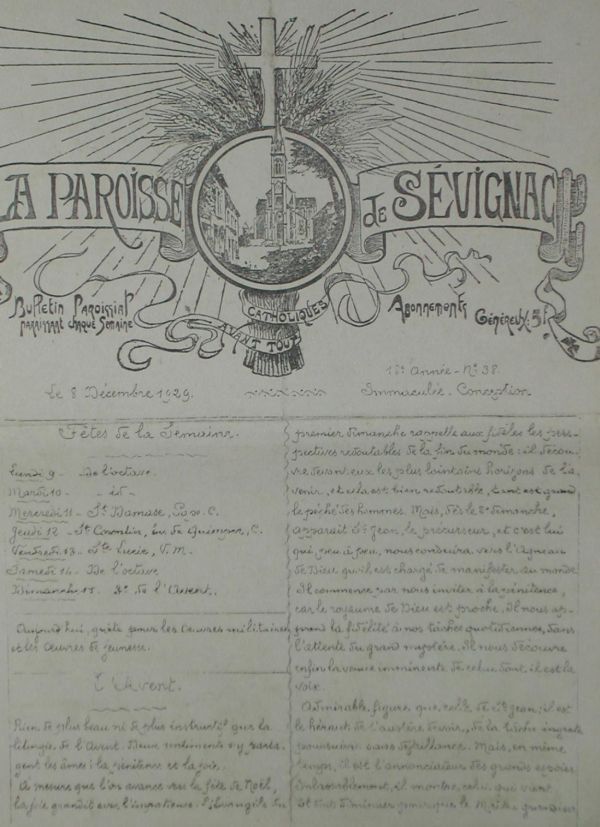 LA PAROISSE de SÉVIGNAC
Bulletin Paroissial
paraissant chaque Semaine
CATHOLIQUES
AVANT TOUT
Abonnements
Généreux: 5f
Le 8 Décembre 1929.
Année - No 38.
Immaculée-Conception
Fêtes de la Semaine.
Lundi 9 - De l'octave.
Mardi 10 - - id -
Mercredi 11 - St Damase, Pape. C.
Jeudi 12 - St Corentin, év. de Quimper, C.
Vendredi 13 - Ste Lucie, V. M.
Samedi 14 - De l'octave
Dimanche 15. 3e de l'Avent.
Aujourd'hui, quête pour les Œuvres militaires
et les Œuvres de jeunesse.
L'Avent.
Rien de plus beau ni de plus instructif que la
liturgie de l'Avent. Deux sentiments s'y parta-
gent les âmes: la pénitence et la joie.
A mesure que l'on avance vers la fête de Noël,
la joie grandit avec l'impatience. L'évangile du
premier dimanche rappelle aux fidèles les pers-
pectives redoutables de la fin du monde: il décou-
vre devant eux les plus lointains horizons de l'a-
venir, et cela est bien redoutable, tant est grand
le péché des hommes. Mais, dès le 2e dimanche,
apparaît St Jean, le précurseur, et c'est lui
qui, peu à peu, nous conduira vers l'Agneau
de Dieu qu'il est chargé de manifester au monde.
Il commence par nous inviter à la pénitence,
car le royaume de Dieu est proche. Il nous ap-
prend la fidélité à nos tâches quotidiennes, dans
l'attente du grand mystère. Il nous découvre
enfin la venue imminente de celui dont il est la
voix.
Admirable figure que celle de St Jean: il est
le héraut de l'austère devoir, de la tâche ingrate
poursuivie sans défaillance. Mais, en même
temps, il est l'annonciateur des grands espoirs
Inlassablement, il montre celui qui vient